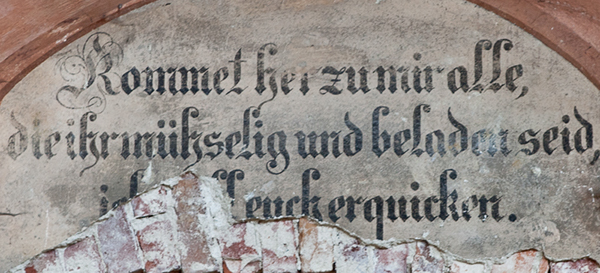 Kommet her zu mir alle,
die ihr mühselig und beladen seid,
euch erquicken.